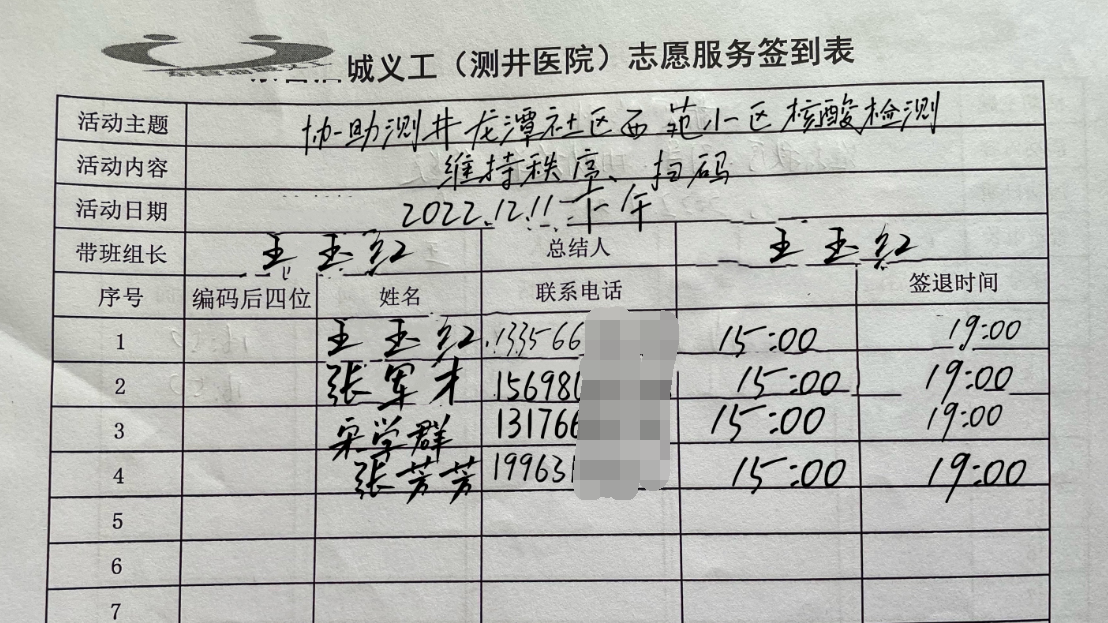 城义工（测井医院）志愿服务签到表
活动主题 协助测井龙潭社区西苑小区核酸检测
活动内容 维持秩序、扫码
活动日期 2022.12.11 下午
带班组长 王玉红 总结人 王玉红
序号 编码后四位 姓名 联系电话 签退时间
1 王玉红 133566 15:00 19:00
2 张军才 15698 15:00 19:00
3 宋学群 131766 15:00 19:00
4 张芳芳 19963 15:00 19:00
5
6
7